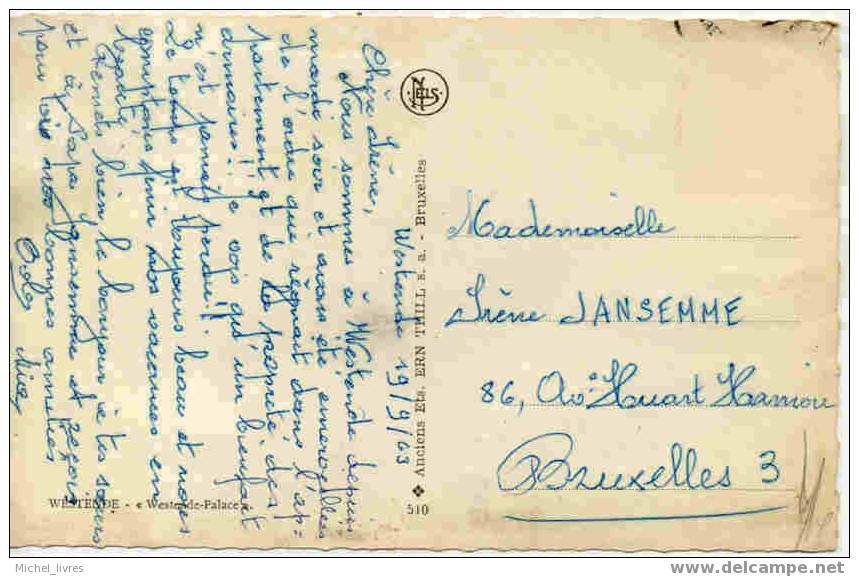 Westende 19/9/63
Chère Irène,
Nous sommes à Westende depuis
mardi soir et avons été émerveillées
de l'ordre que régnait dans l'ap-
partement et de la propreté des
armoires!! Je vois qu'un bienfait
n'est jamais perdu!!
Le temps est toujours beau et nous
comptons finir nos vacances en
beauté,
Remets bien le bonjour à tes sœurs
et à Papa Jansemme et reçois
pour toi nos bonnes amitiés
NELS
Anciens Ets. ERN THILL s. a. - Bruxelles
510
WESTENDE - « Westende-Palace ».
Mademoiselle
Irène JANSEMME
86, Av. Huart Hamoir
Bruxelles 3
Michel_livres
www.delcampe.net